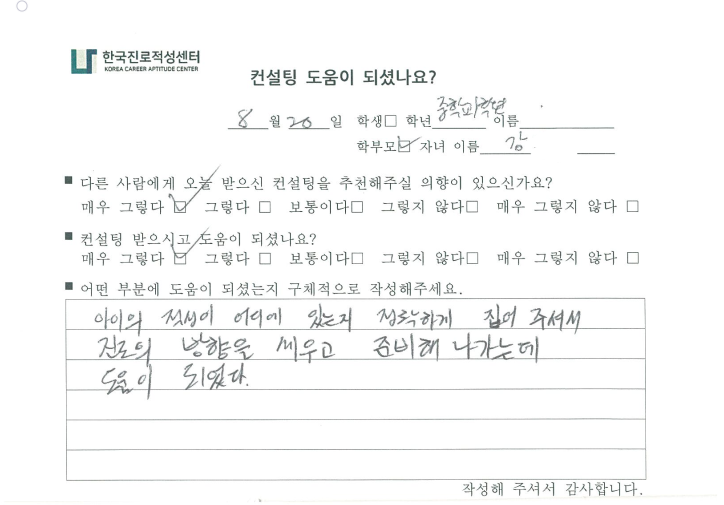 한국진로적성센터
KOREA CAREER APTITUDE CENTER
컨설팅 도움이 되셨나요?
8 월 20 일 학생□ 학년 이름
학부모☑ 자녀 이름 강
■ 다른 사람에게 오늘 받으신 컨설팅을 추천해주실 의향이 있으신가요?
매우 그렇다 ☑ 그렇다 □ 보통이다□ 그렇지 않다□ 매우 그렇지 않다 □
■ 컨설팅 받으시고 도움이 되셨나요?
매우 그렇다 ☑ 그렇다 □ 보통이다□ 그렇지 않다□ 매우 그렇지 않다 □
■ 어떤 부분에 도움이 되셨는지 구체적으로 작성해주세요.
아이의 적성이 어디에 있는지 정확하게 집어 주셔서
진로의 방향을 세우고 준비해 나가는데
도움이 되었다.
작성해 주셔서 감사합니다.